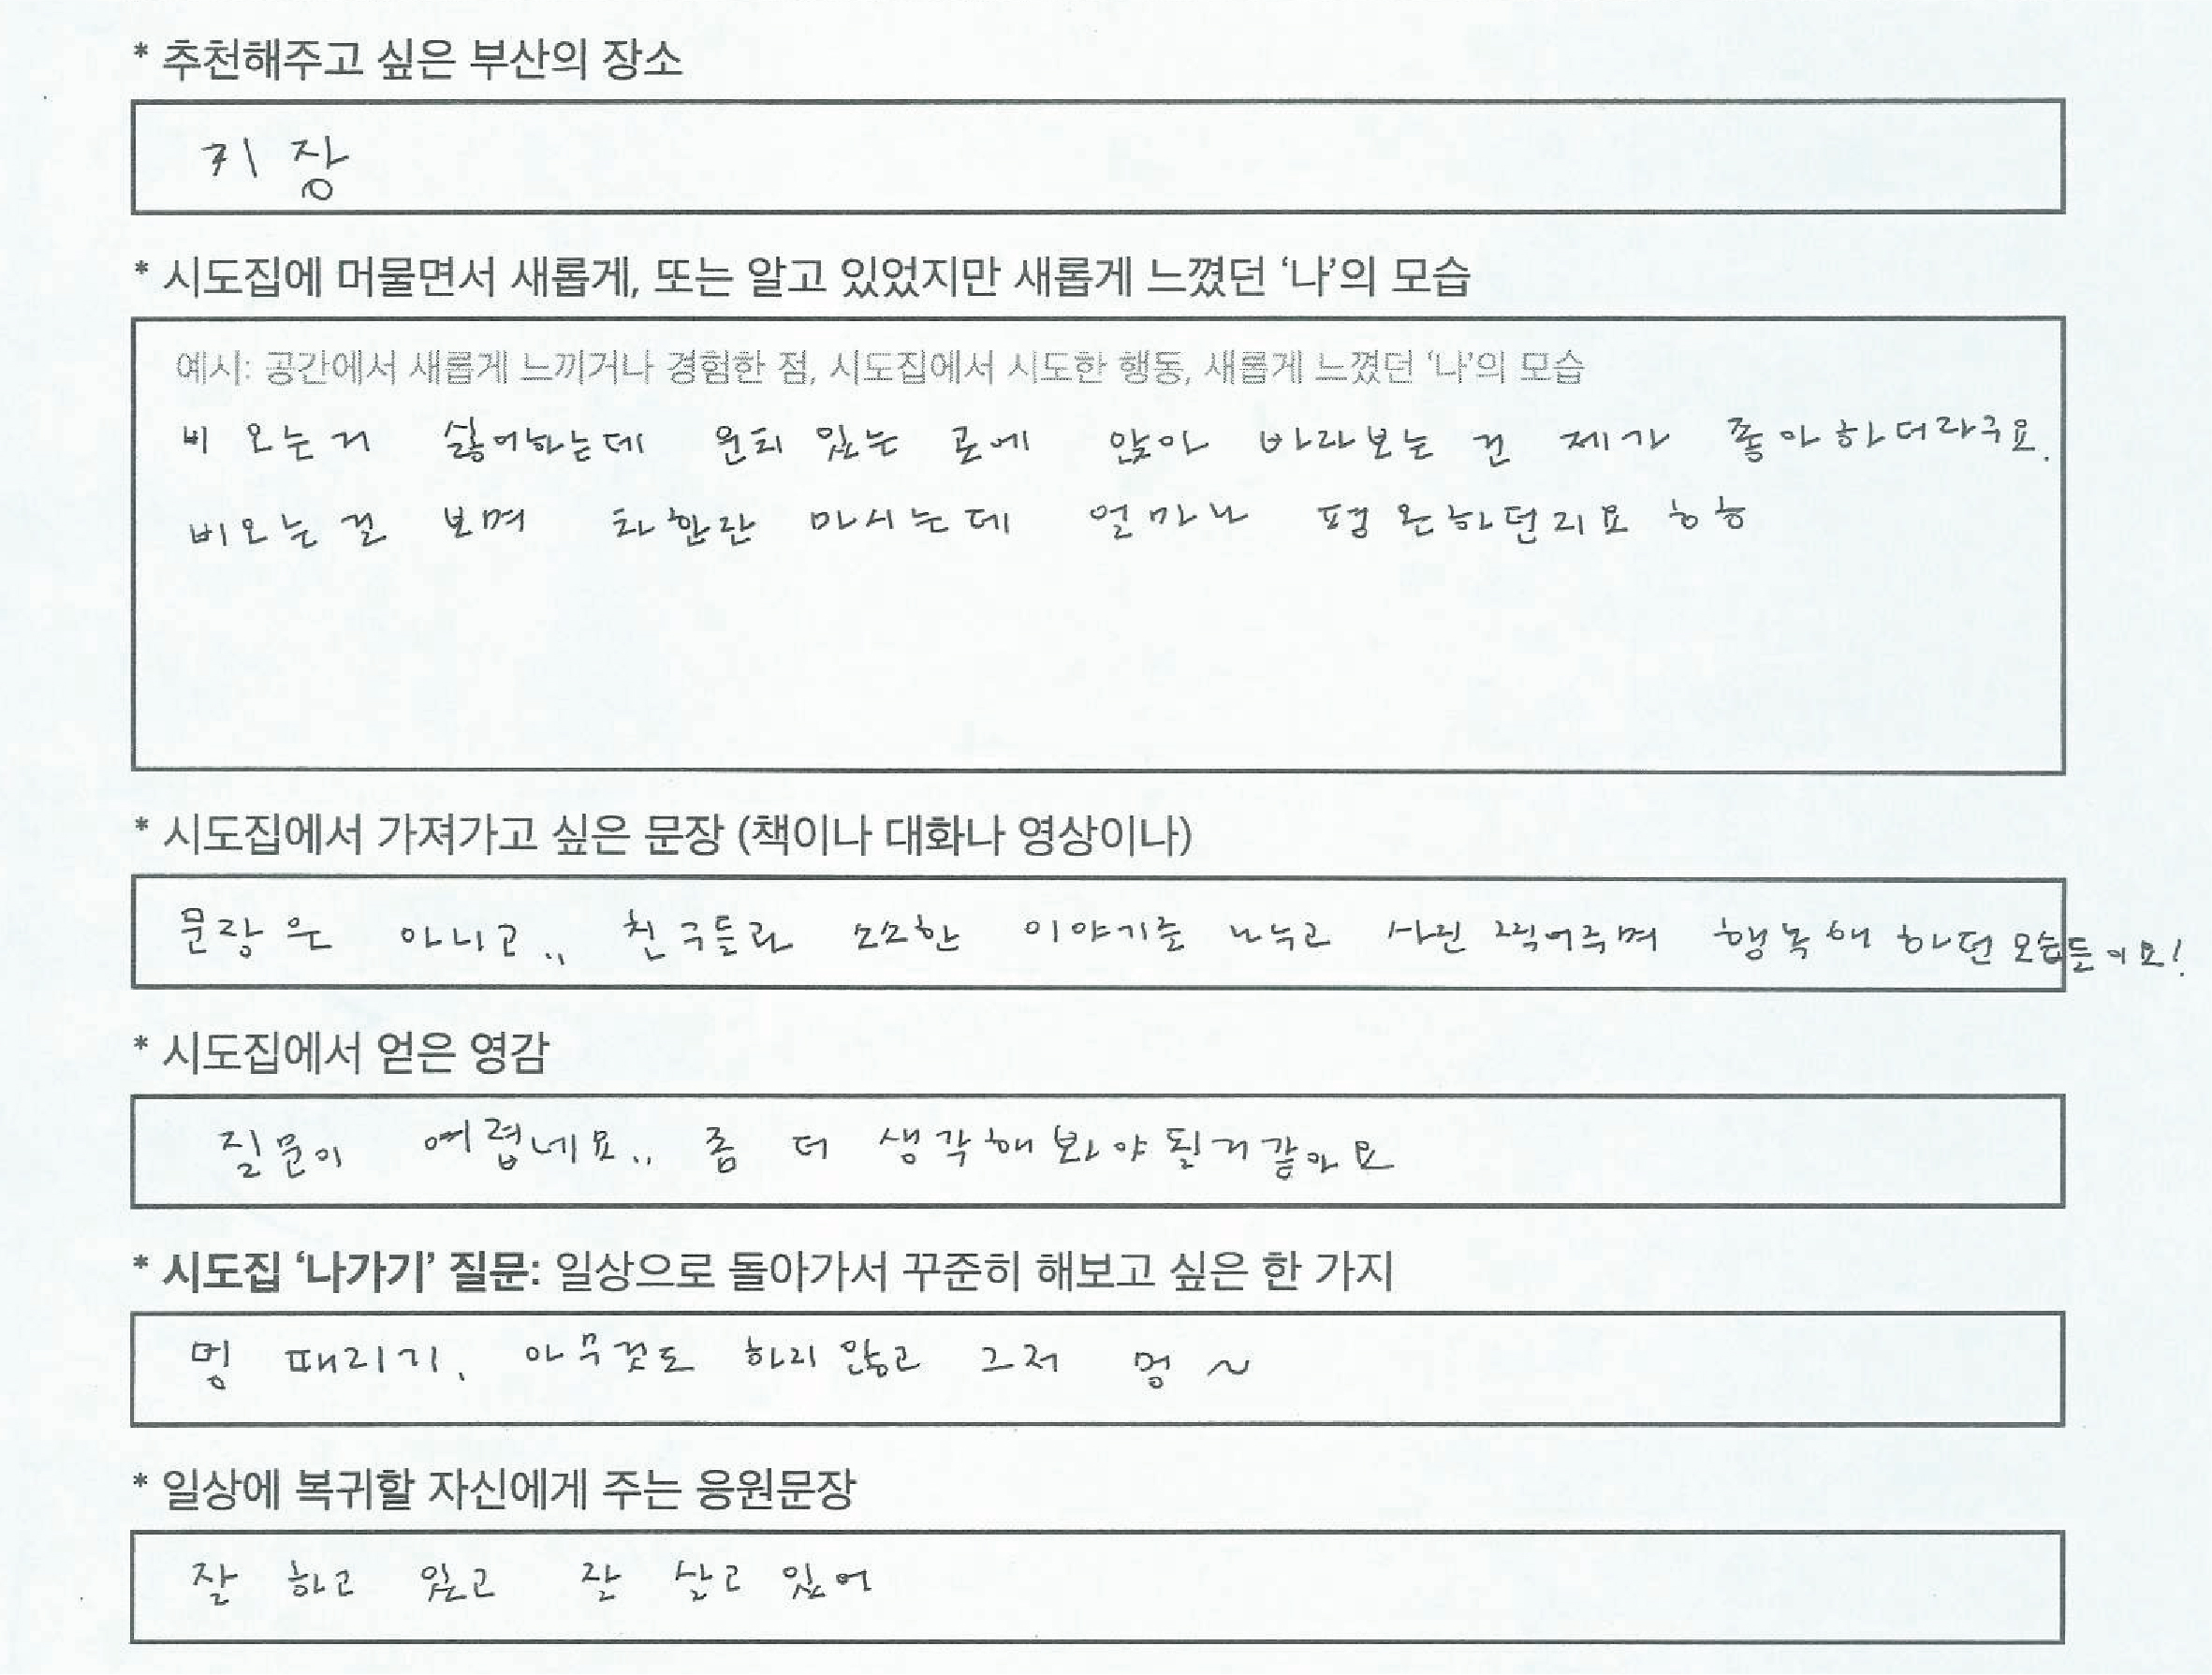 * 추천해주고 싶은 부산의 장소
기장
* 시도집에 머물면서 새롭게, 또는 알고 있었지만 새롭게 느꼈던 ‘나’의 모습
예시: 공간에서 새롭게 느끼거나 경험한 점, 시도집에서 시도한 행동, 새롭게 느꼈던 ‘나’의 모습
비 오는거 싫어하는데 운치 있는 곳에 앉아 바라보는 건 제가 좋아하더라구요.
비오는 걸 보며 차 한잔 마시는데 얼마나 평온하던지요 ㅎㅎ
* 시도집에서 가져가고 싶은 문장 (책이나 대화나 영상이나)
문장은 아니고.. 친구들과 소소한 이야기를 나누고 사진 찍어주며 행복해 하던 모습들이요!
* 시도집에서 얻은 영감
질문이 어렵네요.. 좀 더 생각해봐야 될거 같아요
* 시도집 ‘나가기’ 질문: 일상으로 돌아가서 꾸준히 해보고 싶은 한 가지
멍 때리기. 아무것도 하지 않고 그저 멍~
* 일상에 복귀할 자신에게 주는 응원문장
잘 하고 있고 잘 살고 있어